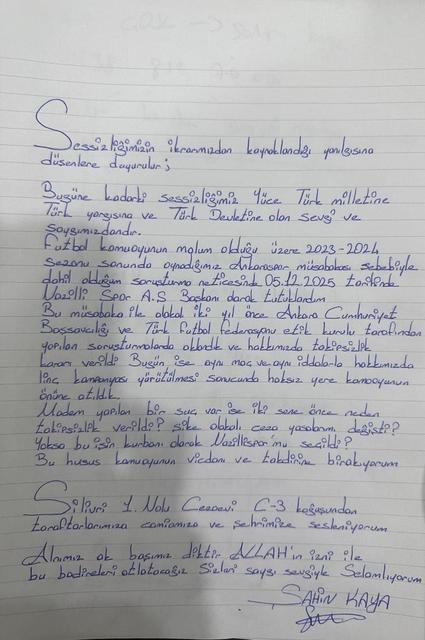 Sessizliğimizin ikrarımızdan kaynaklandığı yanılgısına
düşenlere duyurulur;
Bugüne kadarki sessizliğimiz Yüce Türk milletine
Türk yargısına ve Türk Devletine olan sevgi ve
saygımızdandır.
Futbol kamuoyunun malum olduğu üzere 2023-2024
Sezonu sonunda oynadığımız Ankaraspor müsabakası sebebiyle
dahil olduğum soruşturma neticesinde 05.12.2025 tarihinde
Nazilli Spor A.Ş Başkanı olarak tutuklandım
Bu müsabaka ile alakalı iki yıl önce Ankara Cumhuriyet
Başsavcılığı ve Türk futbol federasyonu etik kurulu tarafından
yapılan soruşturmalarda aklandık ve hakkımızda takipsizlik
kararı verildi Bugün ise aynı maç ve aynı iddialarla hakkımızda
linç kampanyası yürütülmesi sonucunda haksız yere kamuoyunun
önüne atıldık.
Madem yapılan bir suç var ise iki sene önce neden
takipsizlik verildi? şike alakalı ceza yasalarımı değişti?
Yoksa bu işin kurbanı olarak Nazillispor'mu seçildi?
Bu husus kamuoyunun vicdanı ve takdirine bırakıyorum
Silivri 1. Nolu Cezaevi C-3 koğuşundan
taraftarlarımıza camiamıza ve şehrimize sesleniyorum
Alnımız ak başımız diktir ALLAH'ın izni ile
bu badireleri atlatacağız Sizleri saygı sevgiyle Selamlıyorum
ŞAHİN KAYA